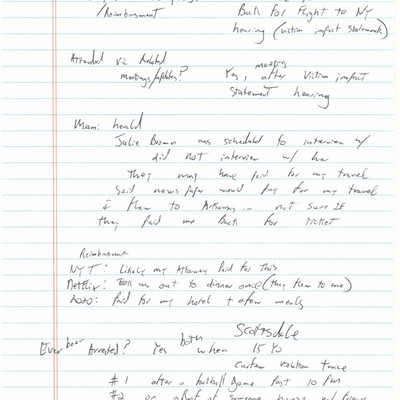 /Reimbursment Back for Flight to NY
hearing (victim impact statement)
Attended Vic Related meeting
meetings/updates? Yes, after Victim impact
Statement hearing
Miami herald
Julie Brown was scheduled to interview w/
did not interview w/ her
they may have paid for my travel
Said news paper would pay for my travel
I flew to not sure IF
they paid me Back for ticket
Reimbursment
NYT: Likely my Attorney Paid for this
Netflix: Took me out to dinner once (they flew to me)
2020: Paid for my hotel + a few meals
Scottsdale
Ever been Arrested? Yes both when 15 YO
curfew violation twice
#1 after a football Game Past 10 PM
#2 or a